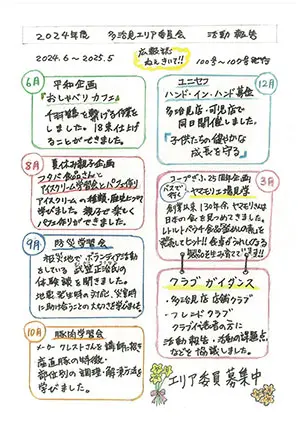 2024年度 多治見エリア委員会 活動報告
2024.6～2025.5
広報誌
ねぇきいて!!
100号～109号発行
6月
平和企画
『おしゃべりカフェ』
千羽鶴を繋げる作業を
しました。18束仕上げ
ることができました。
8月
夏休み親子企画
フタバ食品さんと
アイスクリーム学習会とパフェ作り
アイスクリームの種類・歴史を
学びました。親子で楽しく
パフェ作りができました。
9月
防災学習会
被災地でボランティア活動
をしている武笠正治氏の
体験談を聞きました。
地震発生時の対応、災害時
に助け合うことの大切さを学びました。
10月
豚肉学習会
メーカークレストさんを講師に招き
産直豚の特徴・
部位別の調理・解凍方法を
学びました。
12月
ユニセフ
ハンド・イン・ハンド募金
多治見店・可児店で
同日開催しました。
『子供たちの健やかな
成長を守る』
3月
コープぎふ25周年企画
バスで行く
ヤマモリ工場見学
創業以来130年余、ヤマモリさんは
日本の食を見つめてきました。
レトルトパウチ食品「釜めしの素」を
発売してヒット!!
クラブガイダンス
・多治見店 店舗クラブ
・フレンドクラブ
クラブ代表者の方に
活動報告・活動の課題点
などを協議しました。
エリア委員募集中